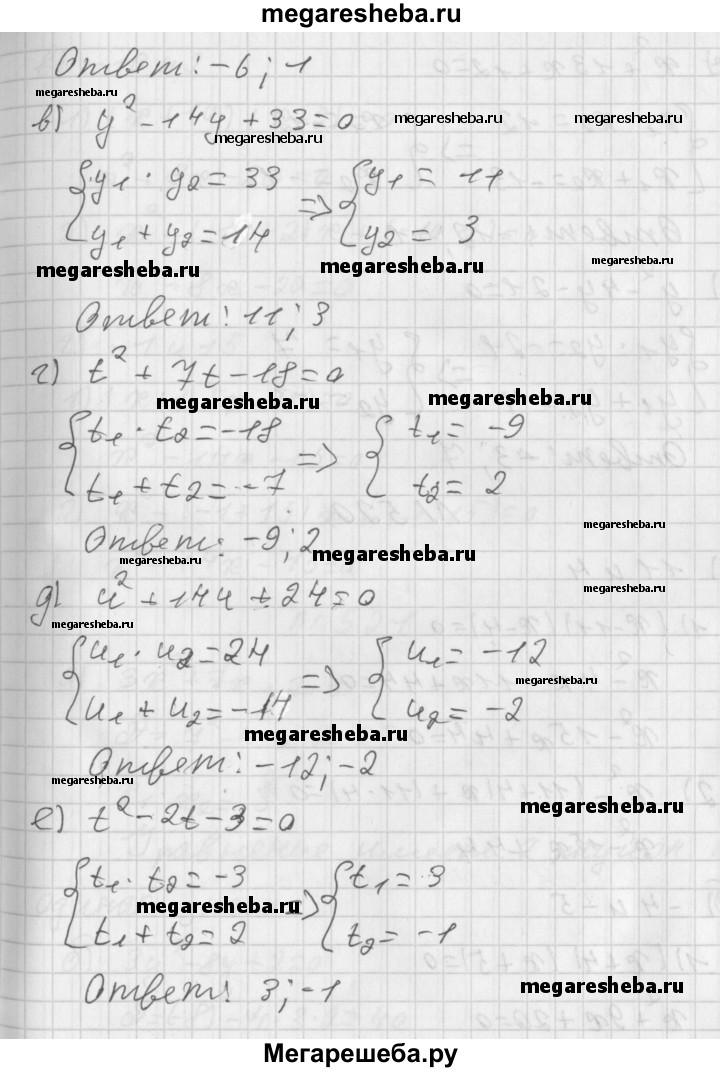 megaresheba.ru
Ответ: -6; -1
в) y² - 14y + 33 = 0
megaresheba.ru megaresheba.ru megaresheba.ru megaresheba.ru
{ y1 · y2 = 33 => { y1 = 11
y1 + y2 = 14 y2 = 3
megaresheba.ru megaresheba.ru megaresheba.ru
Ответ: 11; 3
г) t² + 7t - 18 = 0
megaresheba.ru megaresheba.ru
{ t1 · t2 = -18 => { t1 = -9
t1 + t2 = -7 t2 = 2
megaresheba.ru
Ответ: -9; 2
megaresheba.ru megaresheba.ru
д) u² + 14u + 24 = 0
megaresheba.ru megaresheba.ru
{ u1 · u2 = 24 => { u1 = -12
megaresheba.ru
u1 + u2 = -14 u2 = -2
megaresheba.ru
Ответ: -12; -2
megaresheba.ru megaresheba.ru
е) t² - 2t - 3 = 0
{ t1 · t2 = -3 => { t1 = 3
megaresheba.ru
t1 + t2 = 2 t2 = -1
Ответ: 3; -1
megaresheba.ru
Мегарешеба.ру